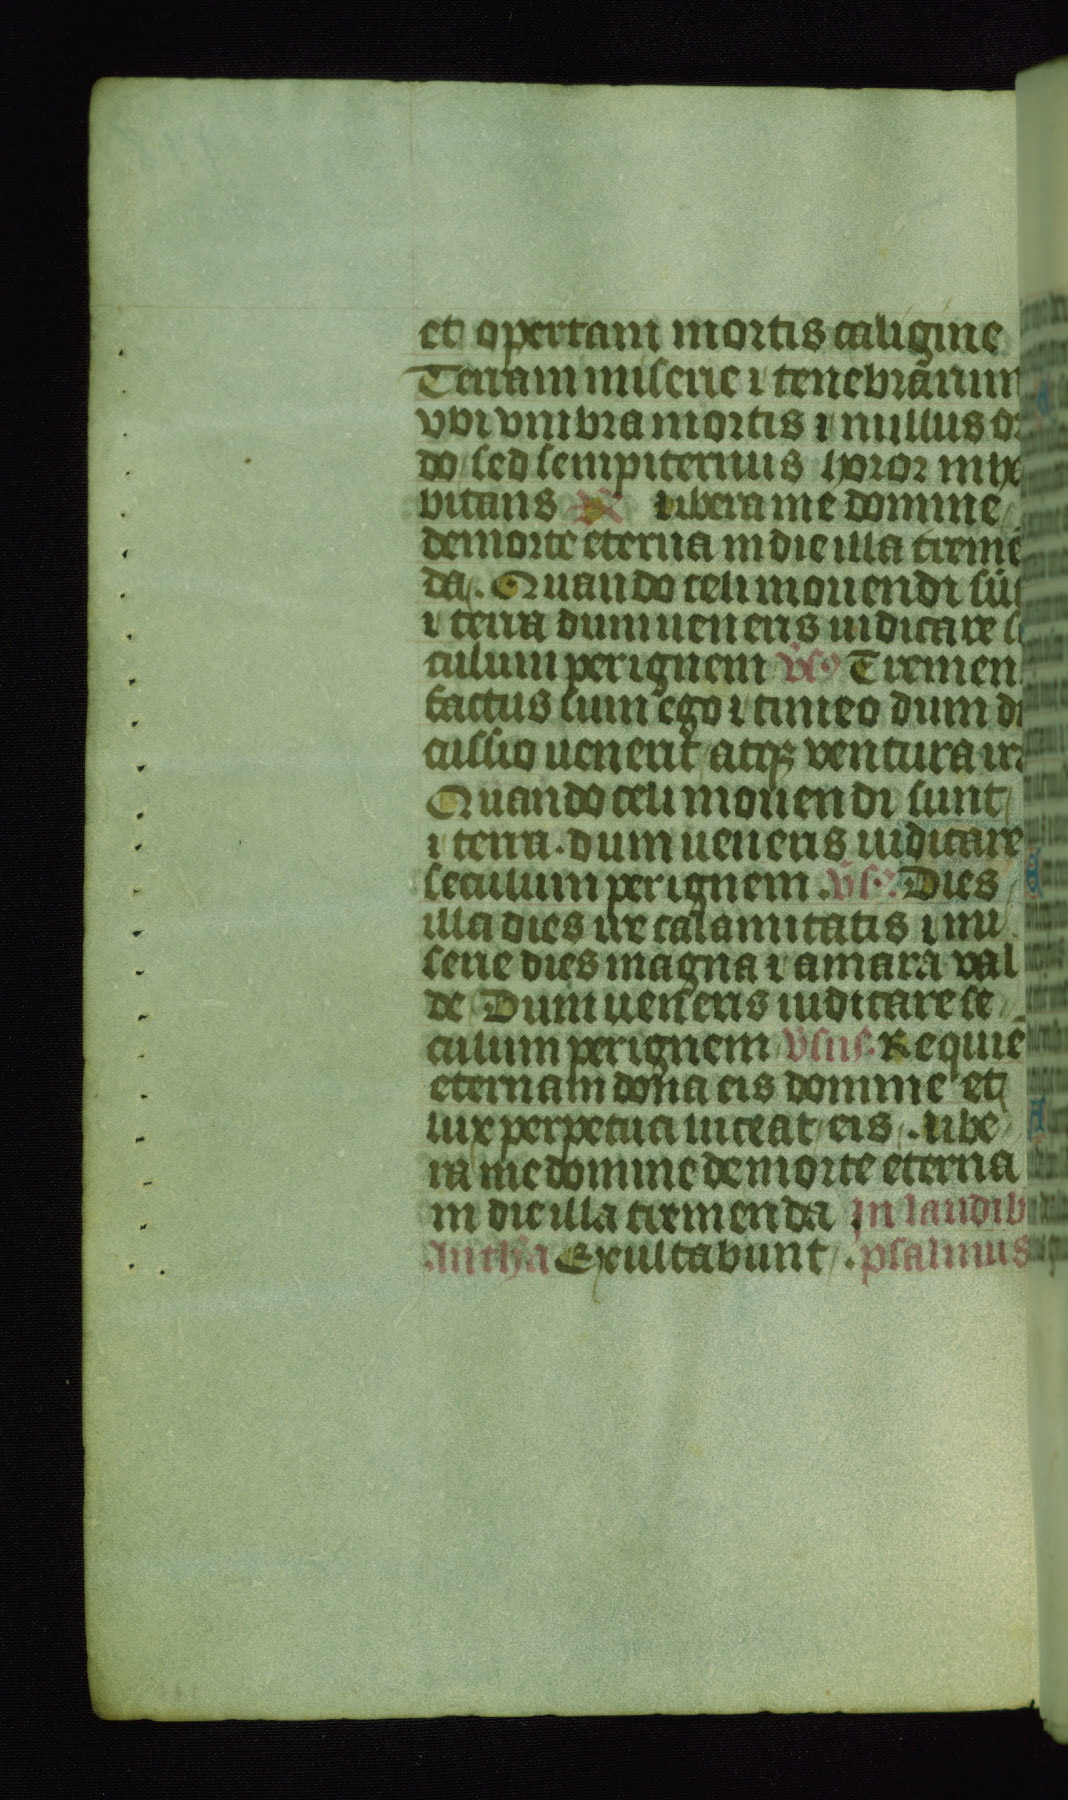 et opertam mortis caligine
Terram miserie ⁊ tenebrarum
vbi vmbra mortis ⁊ nullus or
do sed sempiternus horor inha
bitans R̃ Libera me domine
de morte eterna in die illa treme
da. Quando celi mouendi sūt
⁊ terra dum ueneris iudicare se
culum per ignem v̄s. Tremen
factus sum ego ⁊ timeo dum di
cussio uenerit atqꝫ ventura ira
Quando celi mouendi sunt
⁊ terra. dum ueneris iudicare
seculum per ignem. v̄s. Dies
illa dies ire calamitatis ⁊ mi
serie dies magna ⁊ amara val
de Dum ueneris iudicare se
culum per ignem v̄sus. Requiē
eternam dona eis domine et
lux perpetua luceat eis. Libe
ra me domine de morte eterna
in die illa tremenda In laudib
Antha Exultabunt. psalmus